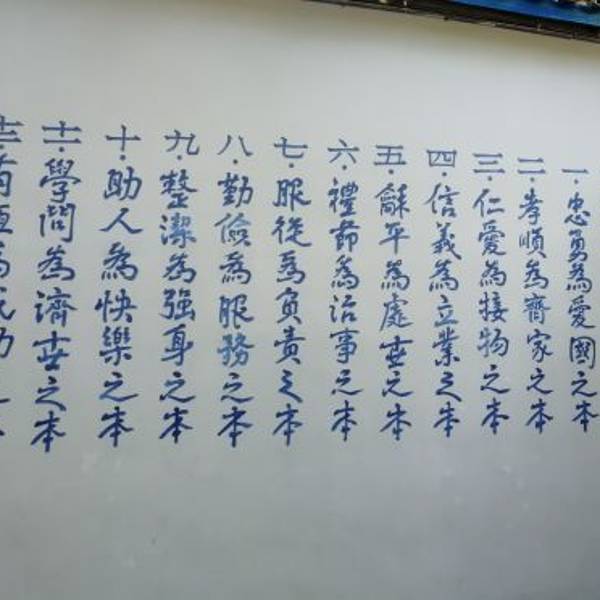 一.忠勇為愛國之本
二.孝順為齊家之本
三.仁愛為接物之本
四.信義為立業之本
五.龢平為處世之本
六.禮節為治事之本
七.服從為負責之本
八.勤儉為服務之本
九.整潔為強身之本
十.助人為快樂之本
十一.學問為濟世之本
十二.有恆為成功之本